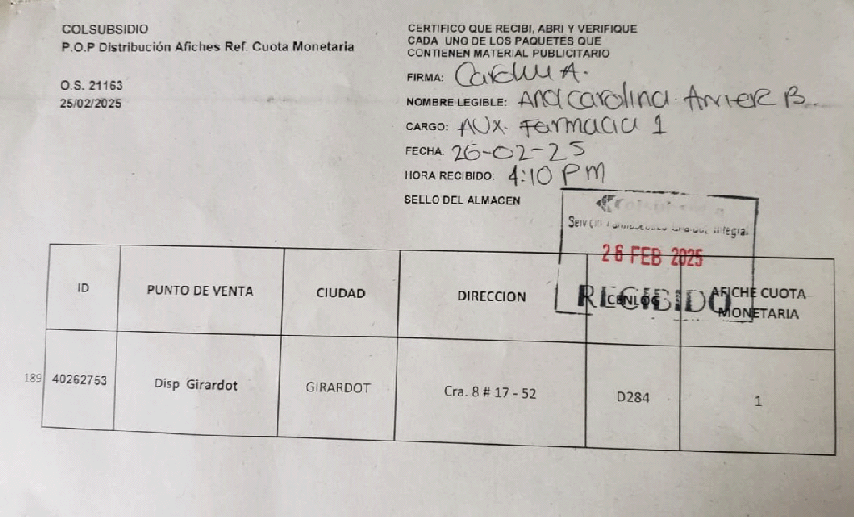 COLSUBSIDIO
P.O.P Distribución Afiches Ref. Cuota Monetaria
O.S. 21163
25/02/2025
CERTIFICO QUE RECIBI, ABRI Y VERIFIQUE
CADA UNO DE LOS PAQUETES QUE
CONTIENEN MATERIAL PUBLICITARIO
FIRMA:
NOMBRE LEGIBLE: Ana Carolina
CARGO: AUX. Farmacia 1
FECHA. 26-02-25
HORA RECIBIDO. 4:10 PM
SELLO DEL ALMACEN
Integral
26 FEB 2025
RECIBIDO
ID PUNTO DE VENTA CIUDAD DIRECCION CENLOG AFICHE CUOTA
MONETARIA
189 40262753 Disp Girardot GIRARDOT Cra. 8 # 17 - 52 D284 1